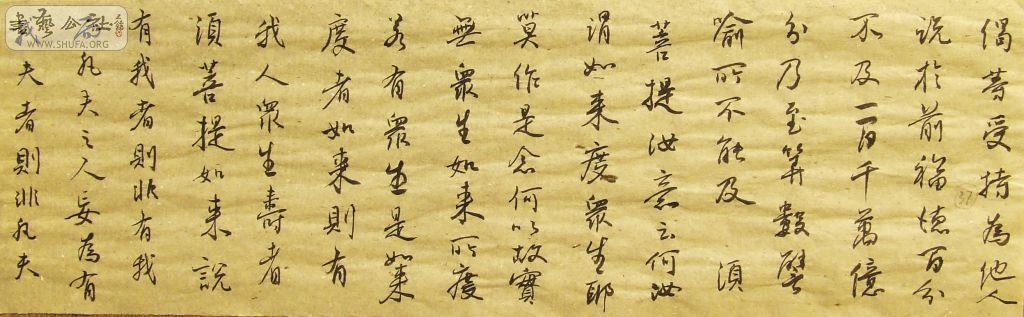 偈等受持為他人
說於前福德百分
不及一百千萬億
分乃至筭數譬
喻所不能及 須
菩提汝意云何汝
謂如来度衆生耶
莫作是念何以故實
無衆生如来所度
若有衆生是如来
度者如来則有
我人衆生壽者
須菩提如来說
有我者則非有我
而凡夫之人妄為有
我夫者則非凡夫
書藝公社
WWW.SHUFA.ORG